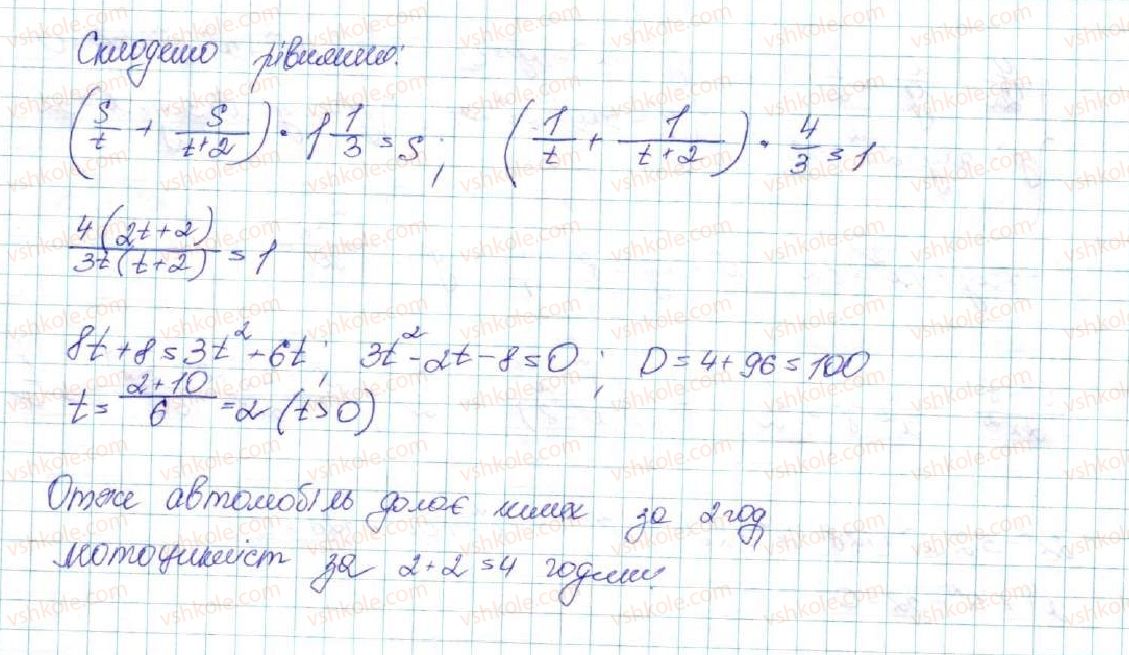 Складемо рівняння:
(S/t + S/(t+2)) · 1 1/3 = S; (1/t + 1/(t+2)) · 4/3 = 1
4(2t+2)/3t(t+2) = 1
8t+8=3t²+6t; 3t²-2t-8=0; D=4+96=100
t = (2+10)/6 = 2 (t>0)
Отже автомобіль долає шлях за 2 год
мотоцикліст за 2+2=4 години.